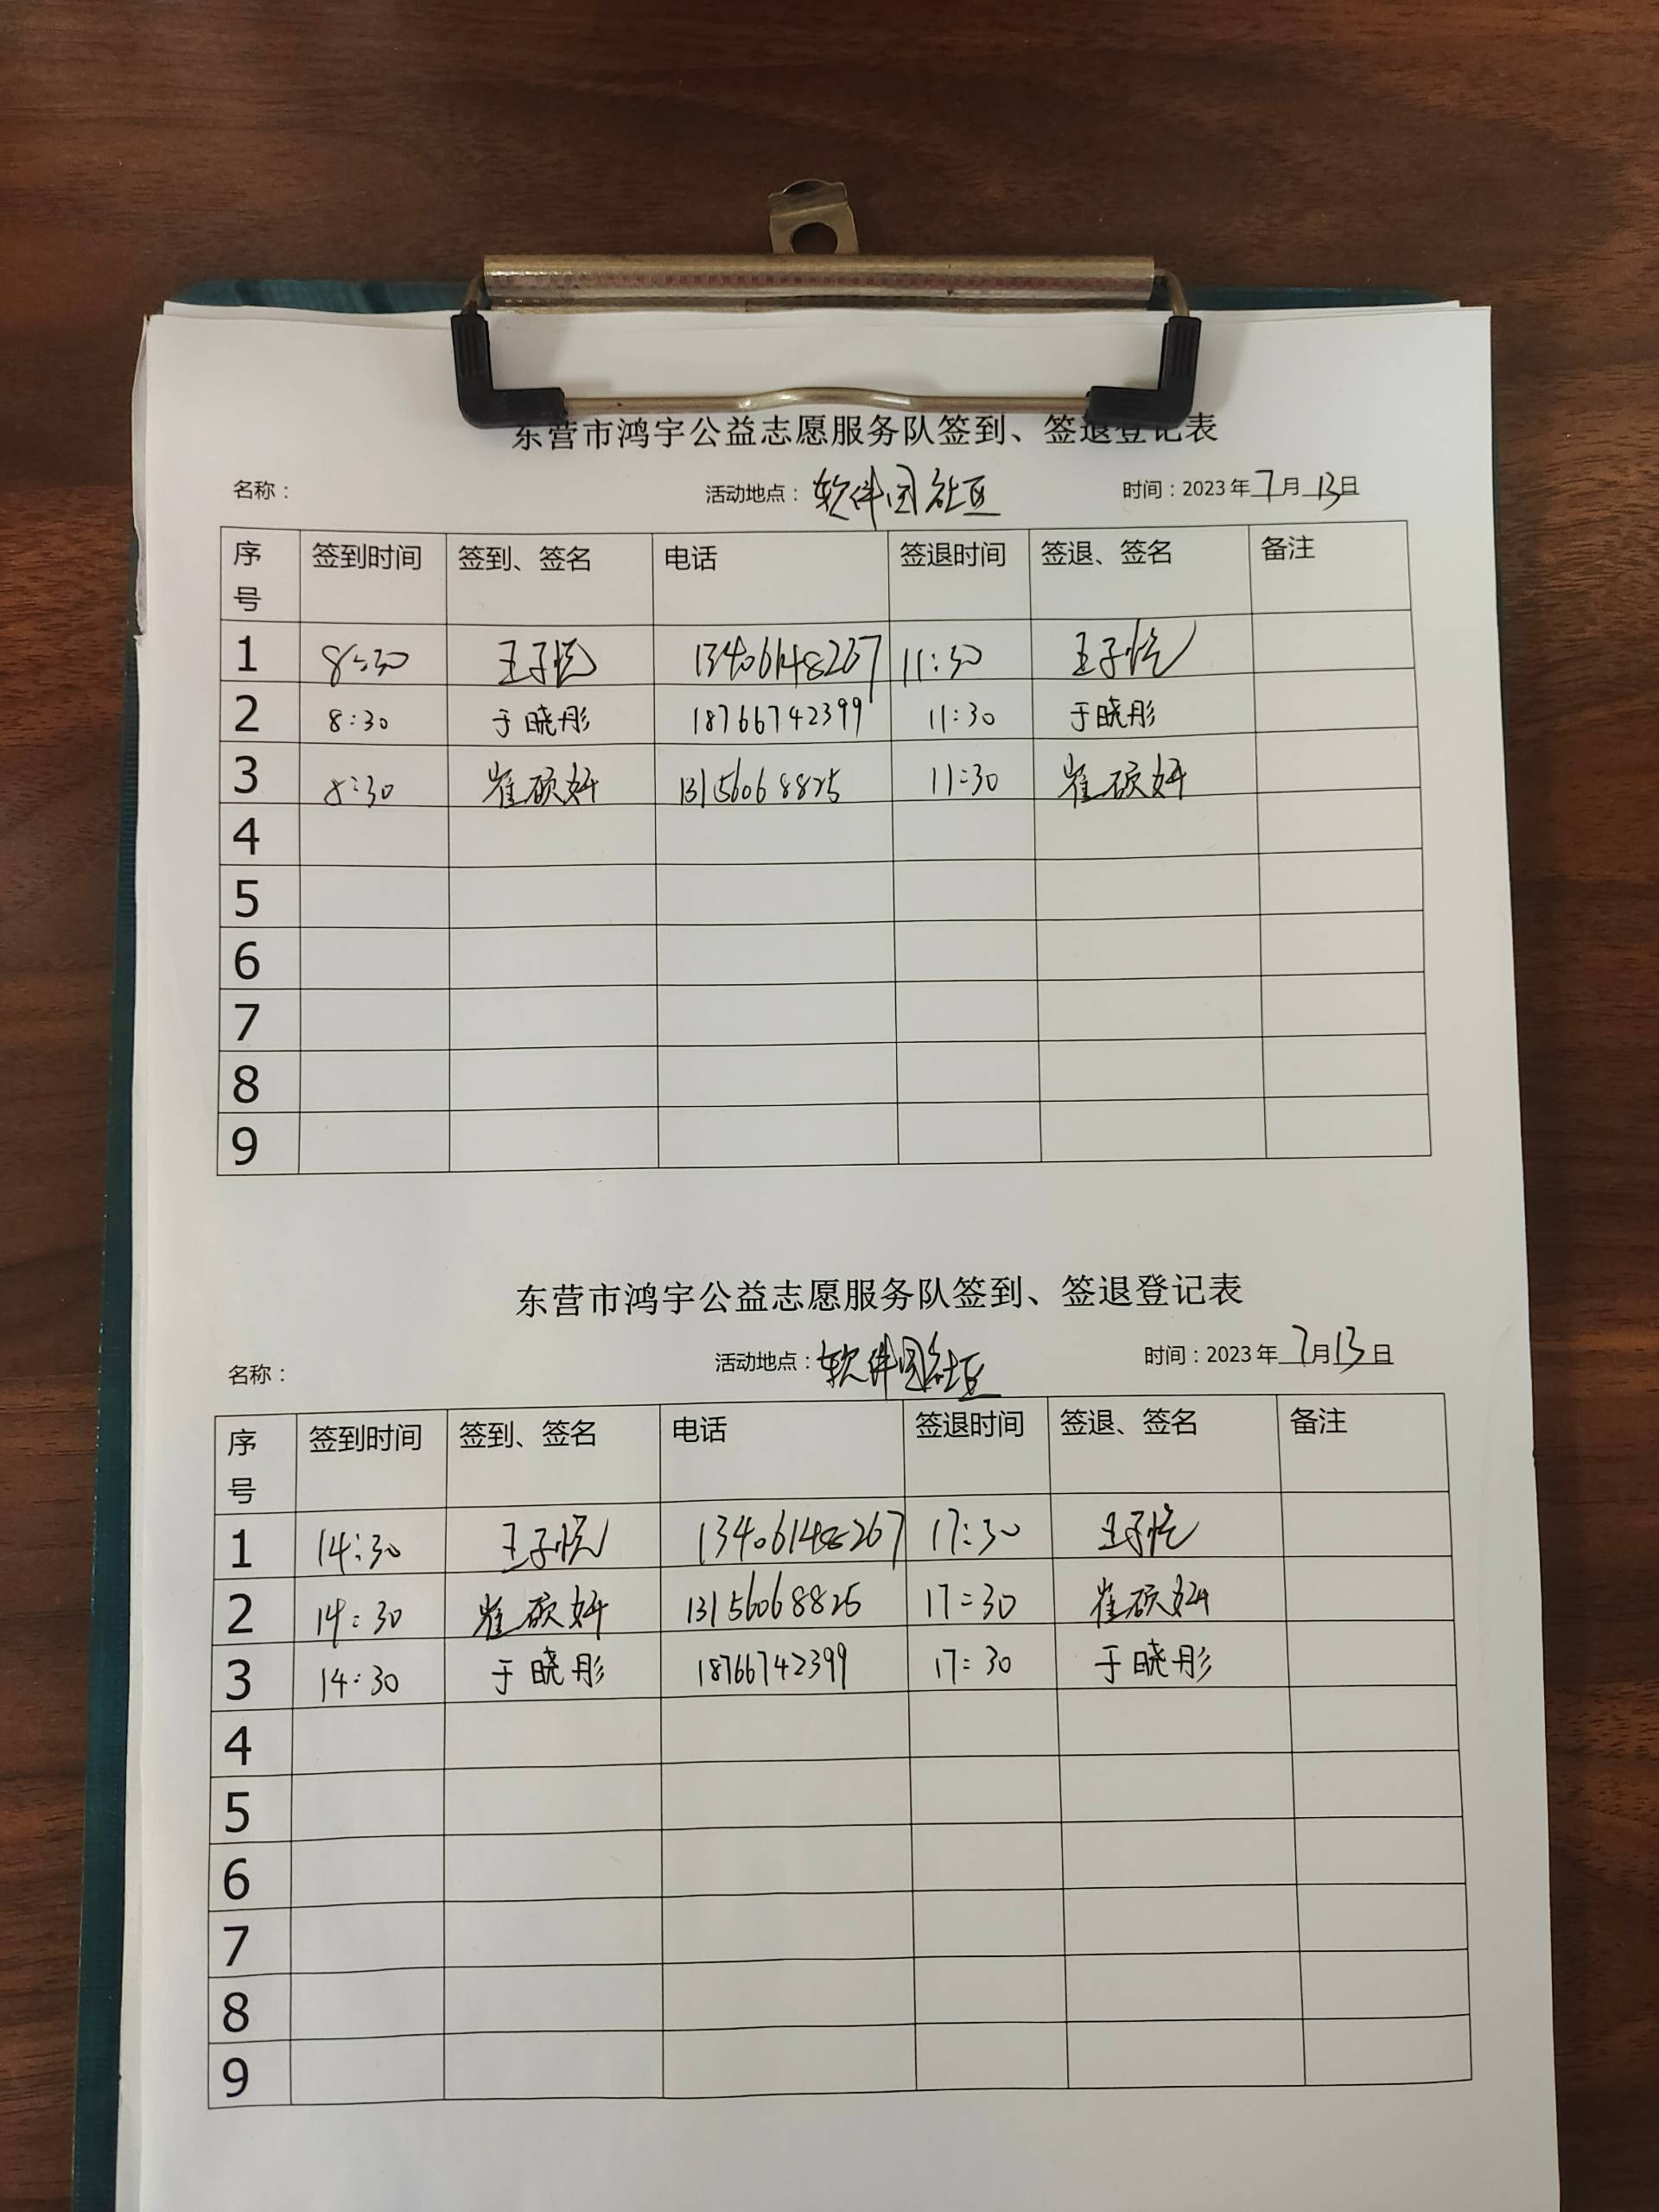 东营市鸿宇公益志愿服务队签到、签退登记表
名称： 活动地点：软件园社区 时间：2023年7月13日
序号 签到时间 签到、签名 电话 签退时间 签退、签名 备注
1 8:30 王子悦 13406148267 11:30 王子悦
2 8:30 于晓彤 18766742399 11:30 于晓彤
3 8:30 崔硕妍 13156068825 11:30 崔硕妍
4
5
6
7
8
9
东营市鸿宇公益志愿服务队签到、签退登记表
名称： 活动地点：软件园社区 时间：2023年7月13日
序号 签到时间 签到、签名 电话 签退时间 签退、签名 备注
1 14:30 王子悦 13406148267 17:30 王子悦
2 14:30 崔硕妍 13156068825 17:30 崔硕妍
3 14:30 于晓彤 18766742399 17:30 于晓彤
4
5
6
7
8
9